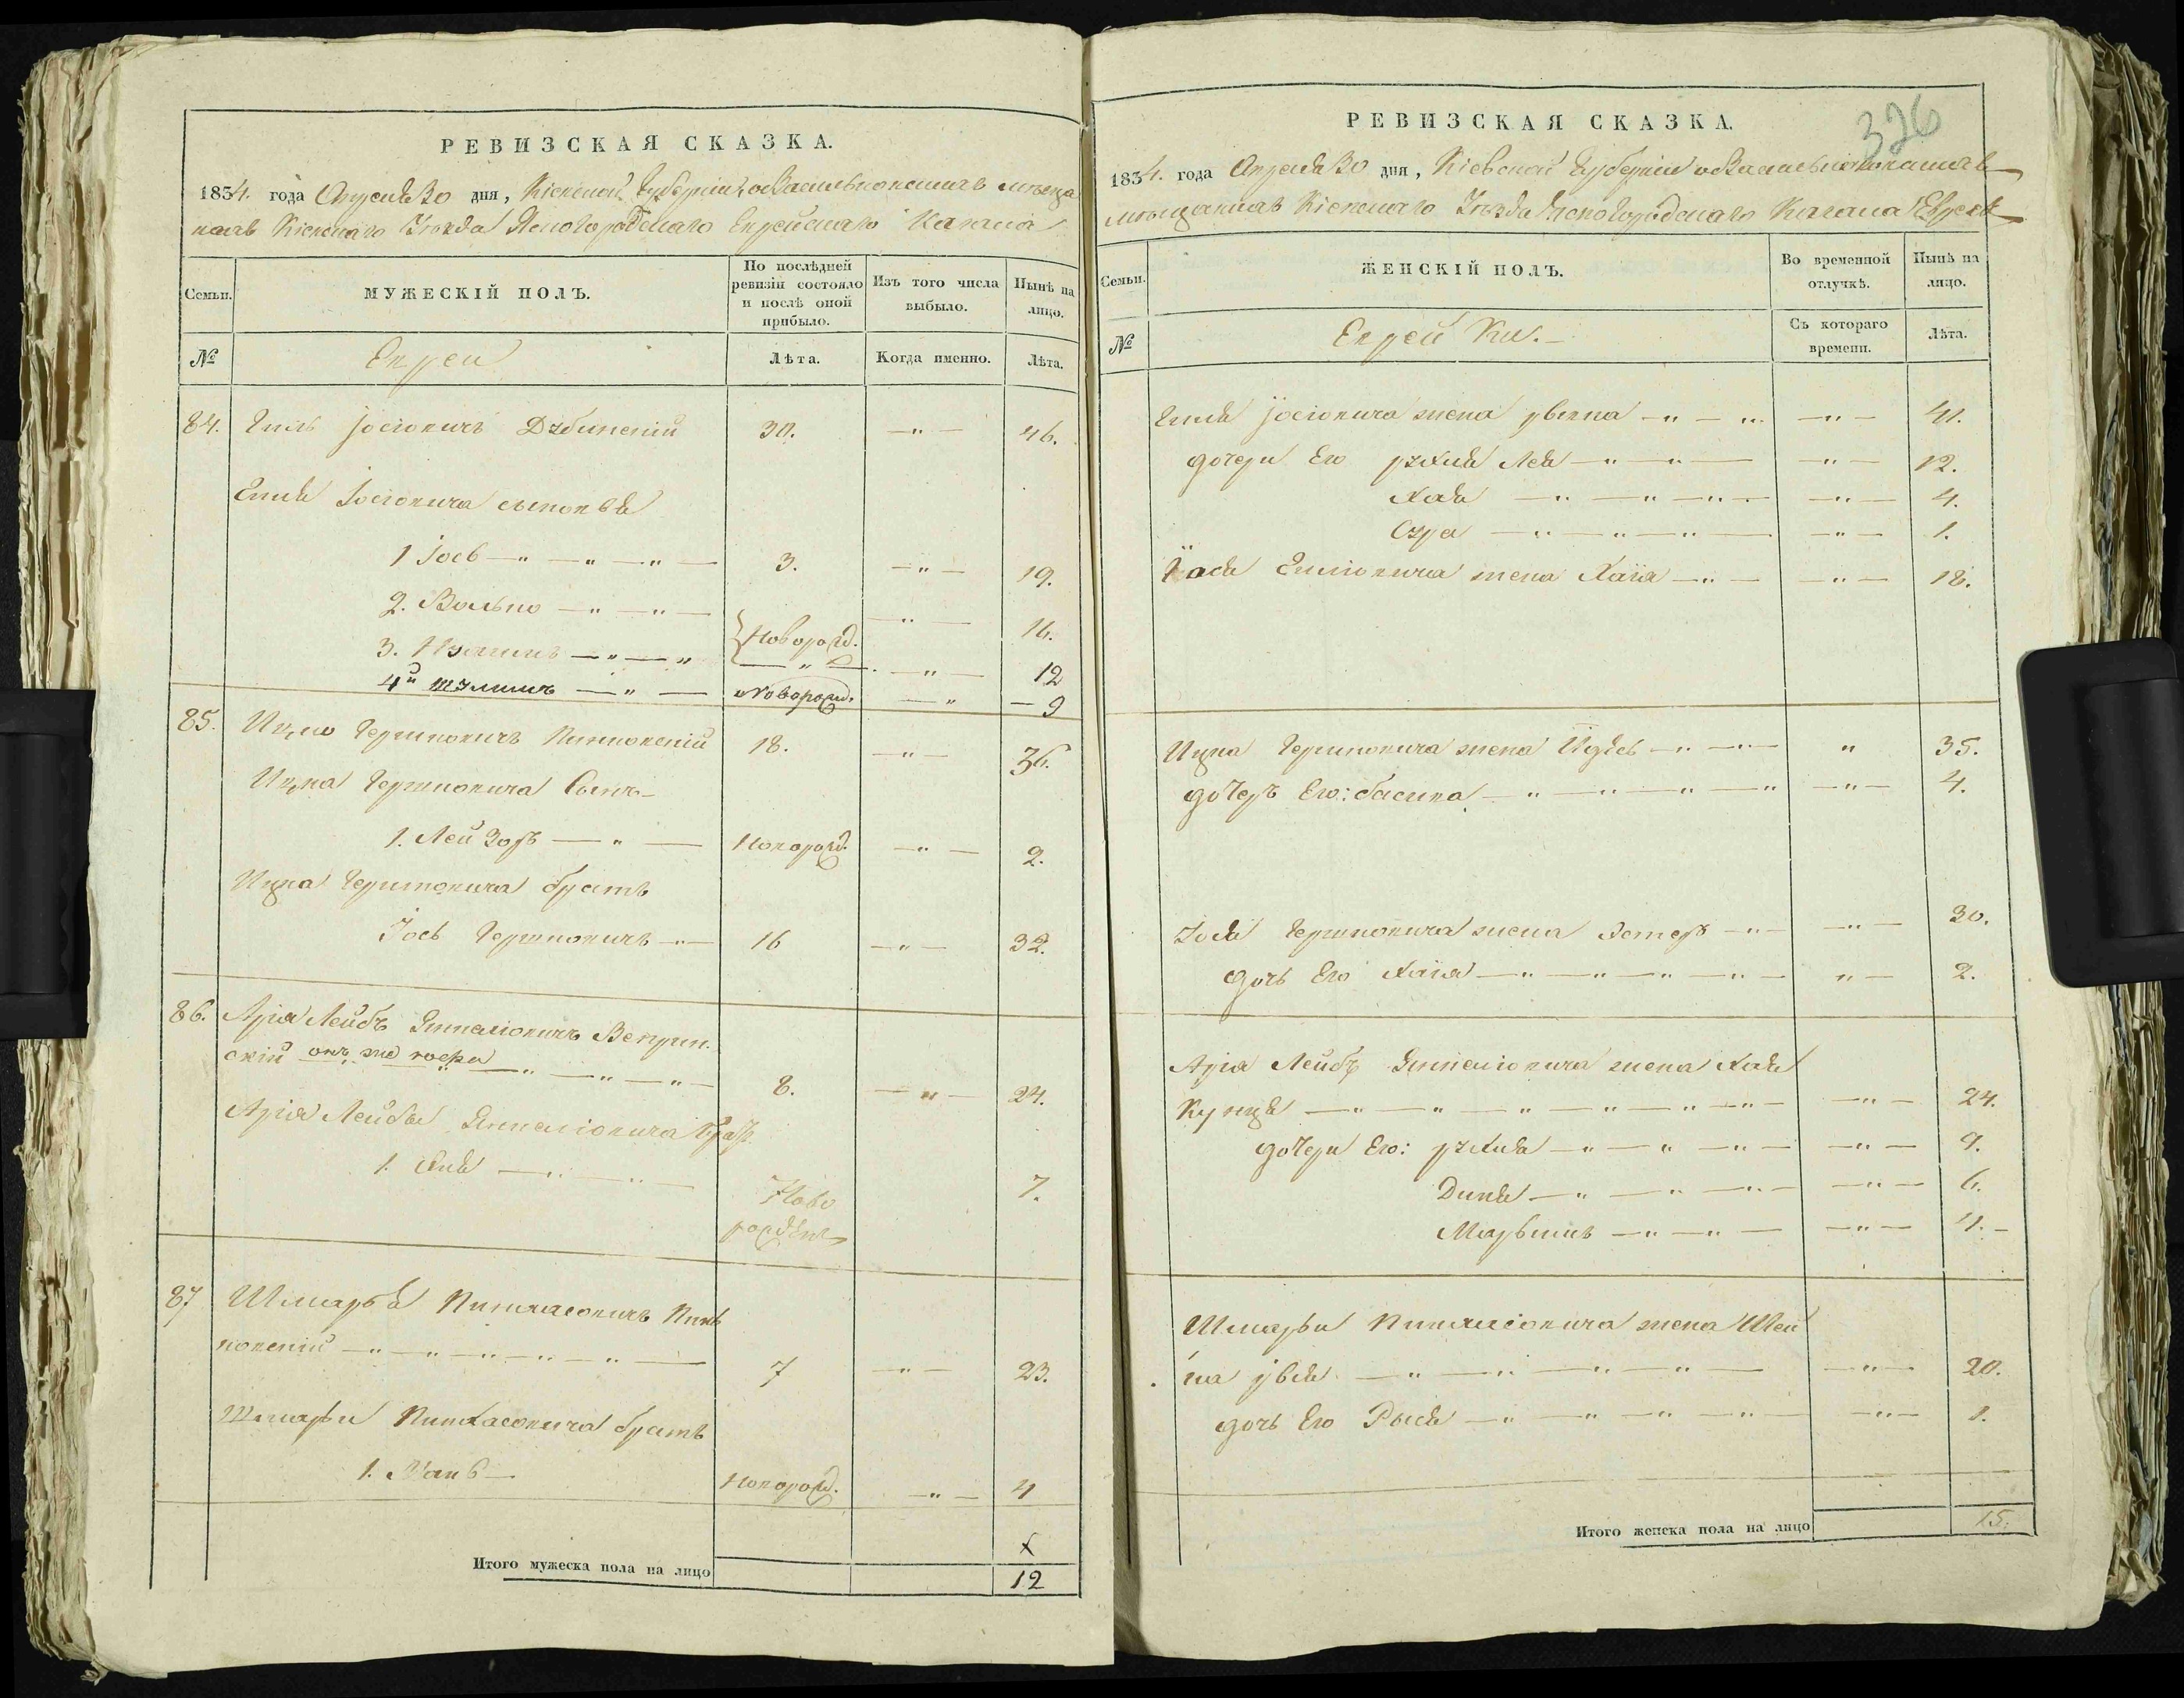 РЕВИЗСКАЯ СКАЗКА.
1834. года Апреля 30 дня, Кіевской Губерніи о Васильковскихъ мѣща
нахъ Кіевскаго Уѣзда Ясногородскаго Еврейскаго Кагала
Семьи.
МУЖЕСКІЙ ПОЛЪ.
По послѣдней ревизіи состояло и послѣ оной прибыло.
Изъ того числа выбыло.
Нынѣ на лицо.
№
Евреи
Лѣта.
Когда именно.
Лѣта.
84. Іосіовичъ 30. —"— 46.
Іосіовича сыновья
1 Іось —"—"—"— 3. —"— 19.
2. Волько —"—"— Новорожд. —"— 16.
3. —"—" —"— —"— 12
4й —"— Новорожд. —" — 9
85. Ицко Гершковичъ 18. —"— 36.
Ицка Гершковича Сынъ
1. Лейзоръ —"— Новорожд. —"— 2.
Ицка Гершковича братъ
Іось Гершковичъ —"— 16 —"— 32.
86. Арія Лейбъ
скій онъ же —"—"—"— 8. —"— 24.
Арія Лейбы
1. —"—"— Ново 7.
рожденъ
87 Шмарья Пинхасовичъ Пинь
ковскій —"—"—"—"—"— 7 —"— 23.
Шмарьи Пинхасовича братъ
1. Новорожд. —"— 4
х
Итого мужеска пола на лицо 12
326
РЕВИЗСКАЯ СКАЗКА.
1834. года Апреля 30 дня, Кіевской Губерніи о Васильковскихъ
мѣщанкахъ Кіевскаго Уѣзда Ясногородскаго Кагала Еврея
Семьи.
ЖЕНСКІЙ ПОЛЪ.
Во временной отлучкѣ.
Нынѣ на лицо.
№
Еврей Ки.
Съ котораго времени.
Лѣта.
Іосіовича жена Ривка —"—" —"— 41.
дочери Его Рухля Лея —"—"— —"— 12.
Хая —"—"—"— —"— 4.
Сура —"—"—"— —"— 1.
Іося жена Хаія —"— —"— 18.
Ицка Гершковича жена —"—"— " 35.
дочеръ Его: басика —"—"—"—" —"— 4.
Іося Гершковича жена Эстеръ —"— —"— 30.
дочь Его Хаія —"—"—"—"— "— 2.
Арія Лейбъ жена Хая
—"—"—"—"—"—"— —"— 24.
дочери Его: Рухля —"—"—"— —"— 9.
Диня —"—"—"— —"— 6.
—"—"— —"— 4.
Шмарьи Пинхасіовича жена Шей
на —"—"—"—"— —"— 20.
дочь Его Рыся —"—"—"—"— —"— 1.
Итого женска пола на лицо 15.